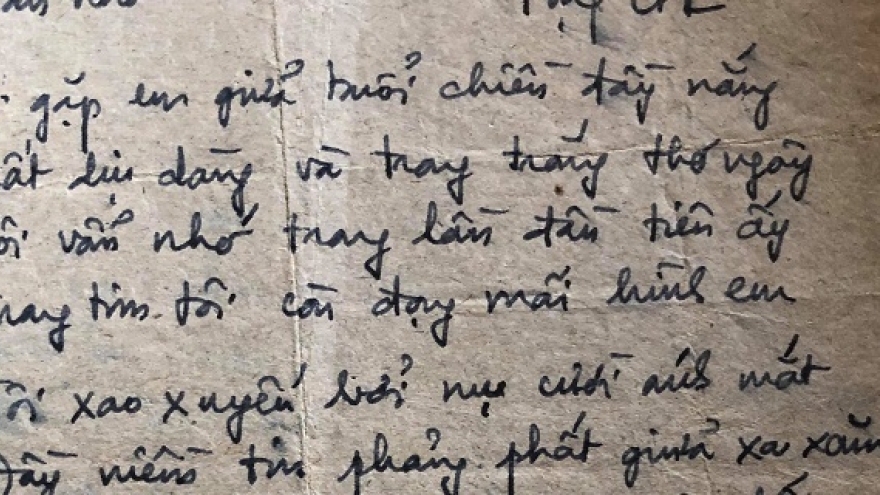 gặp em giữa buổi chiều đầy nắng
dịu dàng và trong trắng thơ ngây
vẫn nhớ trong lần đầu tiên ấy
tim tôi còn đọng mãi hình em
xao xuyến bởi nụ cười ánh mắt
niềm tin phảng phất giữa xa xăm